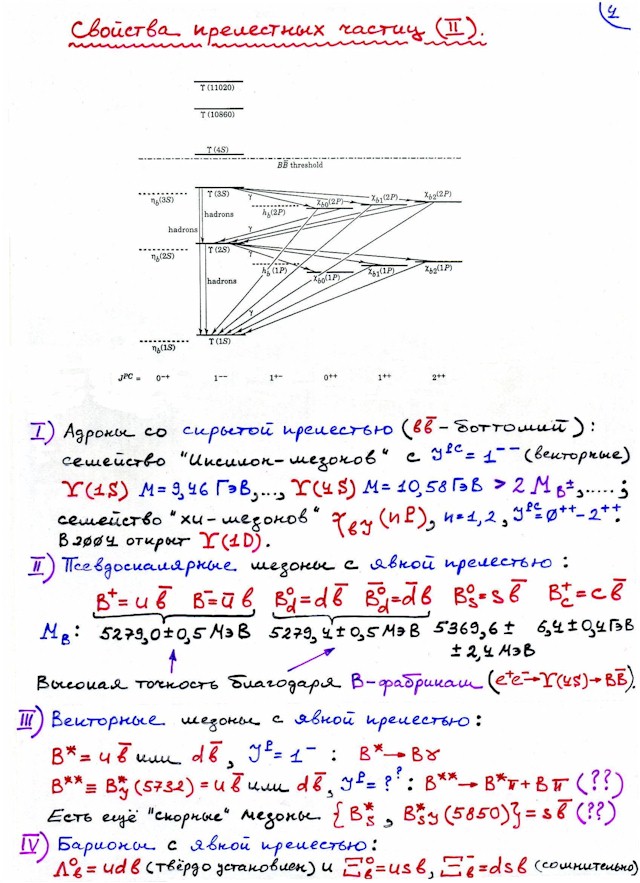 4
Свойства прелестных частиц (II).
Υ(11020)
Υ(10860)
Υ(4S)
BB̄ threshold
Υ(3S)
χb0(2P)
χb1(2P)
χb2(2P)
ηb(3S)
γ
hb(2P)
hadrons
hadrons
γ
Υ(2S)
ηb(2S)
hb(1P)
χb0(1P)
χb1(1P)
χb2(1P)
hadrons
γ
ηb(1S)
Υ(1S)
J^PC = 0-+ 1-- 1+- 0++ 1++ 2++
I) Адроны со скрытой прелестью (вв̄ - боттоний):
семейство "Ипсилон-мезонов" с J^PC = 1-- (векторные)
Υ(1S) M = 9,46 ГэВ, ..., Υ(4S) M = 10,58 ГэВ > 2 M_B±, .....;
семейство "хи-мезонов" χ_вJ (nP), n = 1, 2, J^PC = 0++ - 2++.
В 2004 открыт Υ(1D).
II) Псевдоскалярные мезоны с явной прелестью:
B⁺ = u в̄ B⁻ = ū в B⁰_d = d в̄ B̄⁰_d = d̄ в B⁰_s = s в̄ B⁺_c = c в̄
M_B: 5279,0 ± 0,5 МэВ 5279,4 ± 0,5 МэВ 5369,6 ± 6,4 ± 0,4 ГэВ
± 2,4 МэВ
Высокая точность благодаря В-фабрикам (e⁺e⁻→Υ(4S)→BB̄).
III) Векторные мезоны с явной прелестью:
B* = u в̄ или d в̄, J^P = 1⁻ : B* → Bγ
B** ≡ B*_J (5732) = u в̄ или d в̄, J^P = ?? : B** → B*π + Bπ (??)
Есть ещё "скорные" мезоны {B*_s, B*_sJ (5850)} = s в̄ (??)
IV) Барионы с явной прелестью:
Λ⁰_в = udв (твёрдо установлен) и Ξ⁰_в = usв, Ξ⁻_в = dsв (сомнительно)